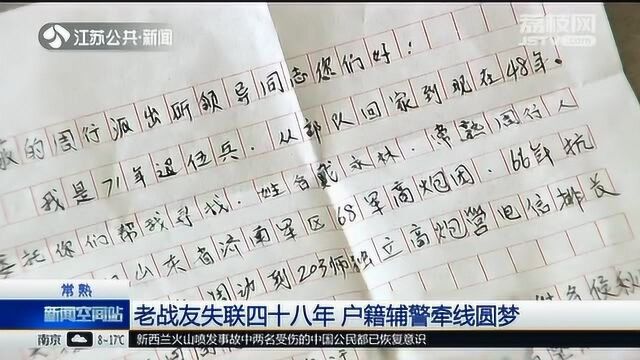 江苏公共·新闻
荔枝网
JSTV.com
的周行派出所领导同志您们好!
我是71年退伍兵。从部队回家到现在48年。
委托你们帮我寻找。姓名戴永林。常熟周行人
山东省济南军区68军高炮团。66年抗
调动到203师独立高炮营电信排长
常熟
新闻空间站
老战友失联四十八年 户籍辅警牵线圆梦
南京 8~17℃
新西兰火山喷发事故中两名受伤的中国公民都已恢复意识